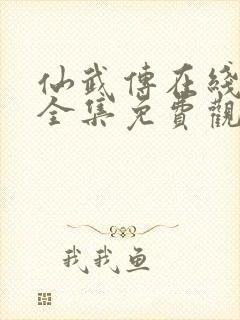 仙武傳在綫
全集免費觀
我我鱼